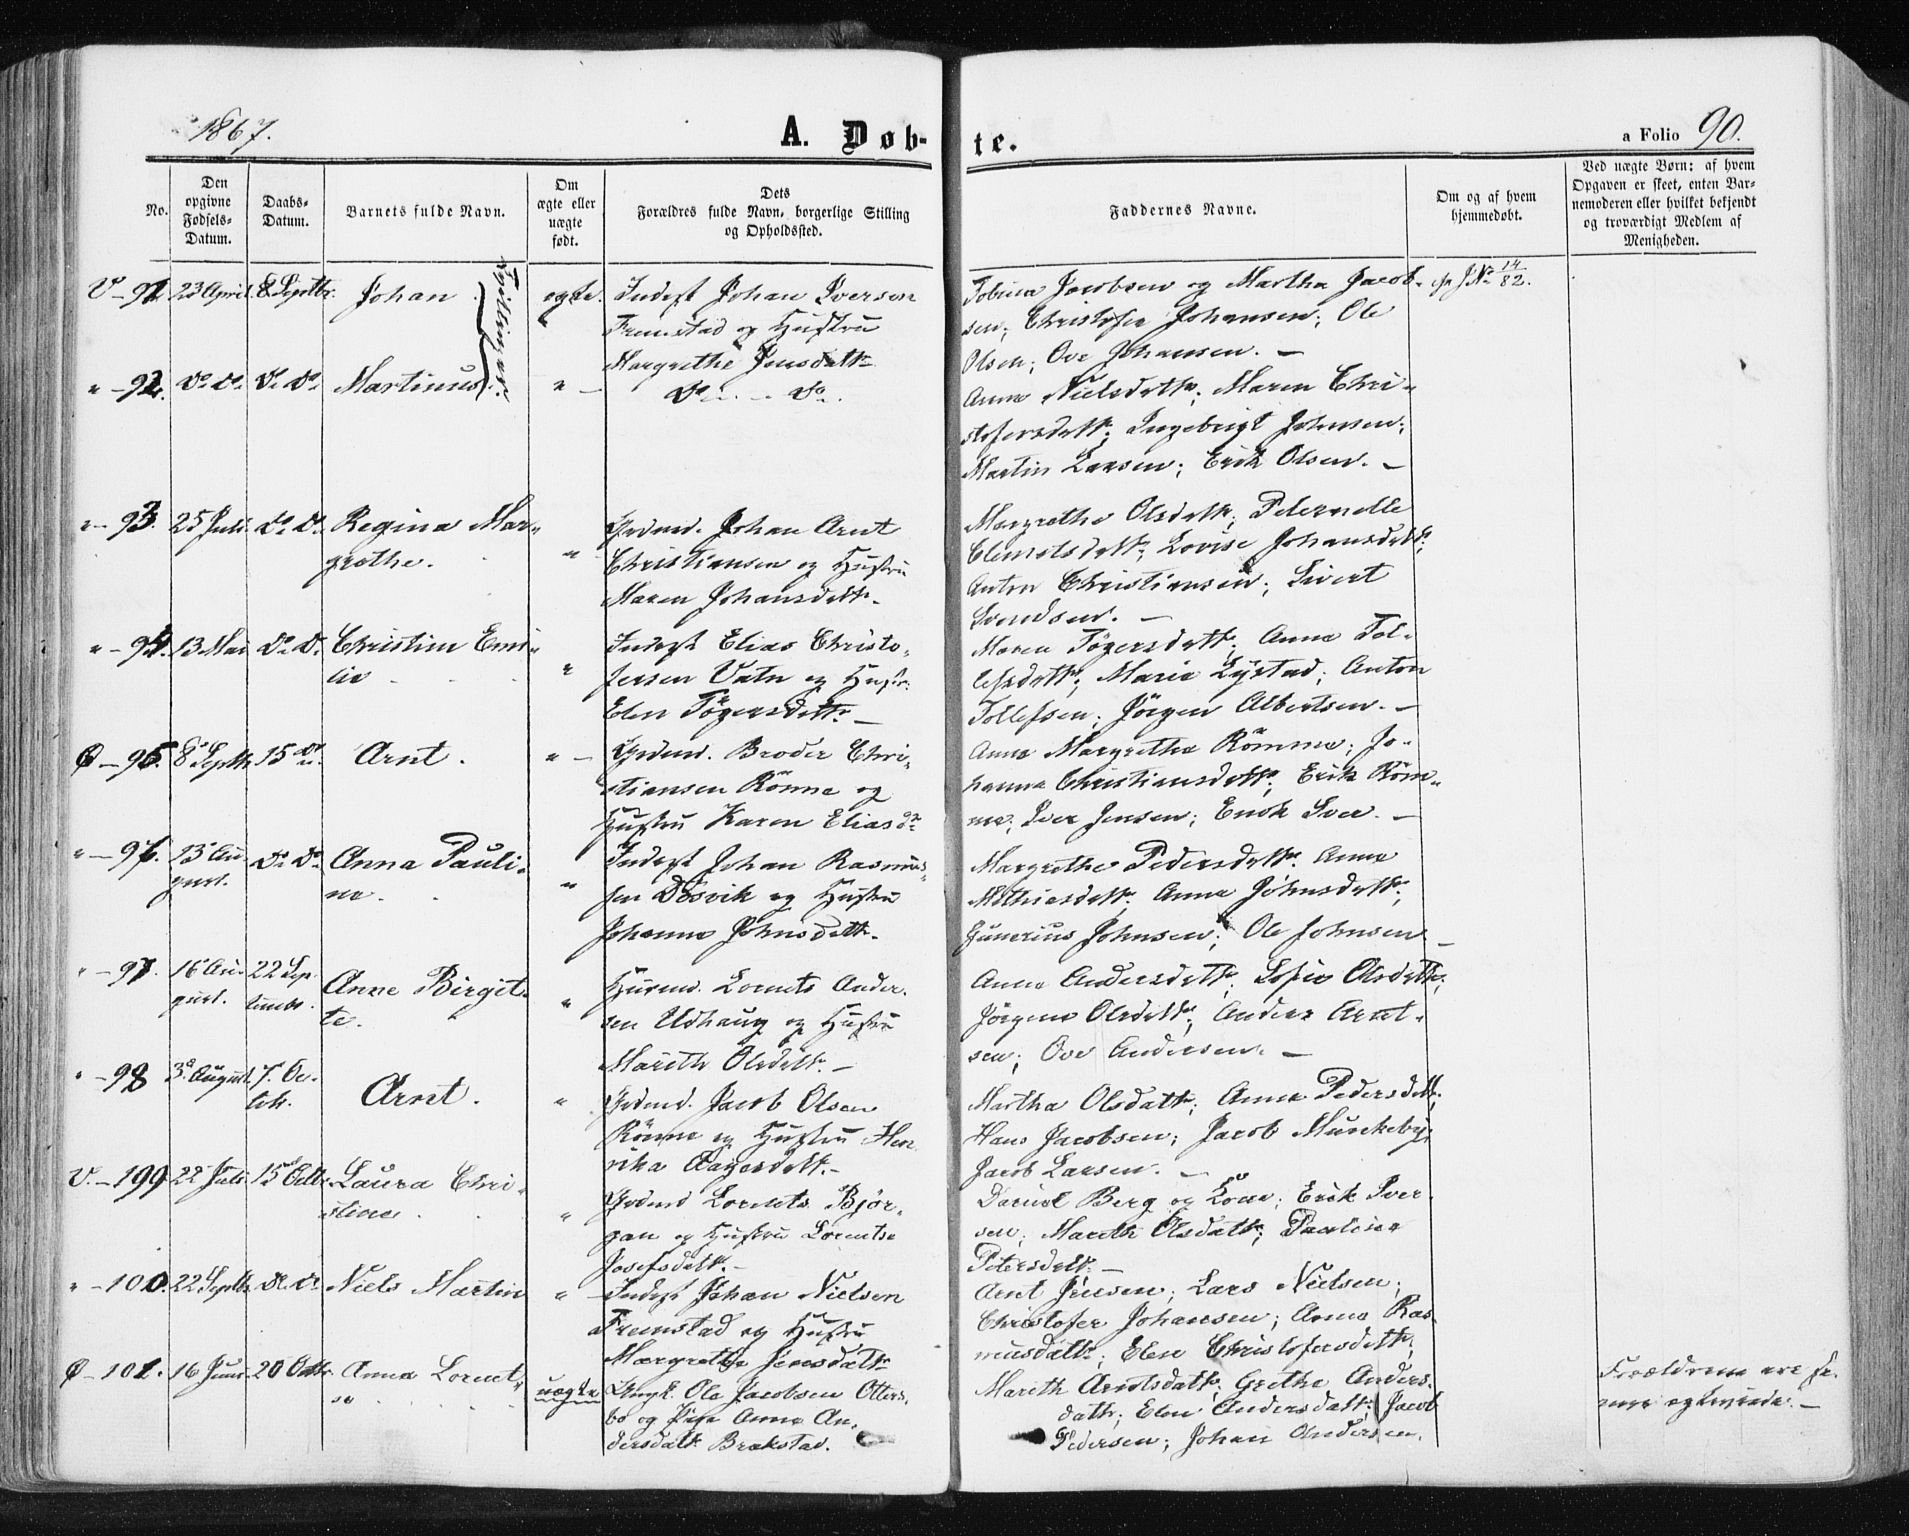 1867.
A. Døb-
te.
a Folio 90.
No.
Den opgivne Fødsels-Datum.
Daabs-Datum.
Barnets fulde Navn.
Om ægte eller uægte født.
Dets Forældres fulde Navn, borgerlige Stilling og Opholdssted.
Faddernes Navne.
Om og af hvem hjemmedøbt.
Ved uægte Børn: af hvem Opgaven er skeet, enten Barnemoderen eller hvilket bekjendt og troværdigt Medlem af Menigheden.
V - 91. 23 April. 8 Septbr. Johan
Tvillinger.
ægte. Inderst Johan Iversen
Fremstad og Hustru
Margrethe Jensdattr
Jacobsen og Martha Jacob-
sen; Christofer Johansen; Ole
Olsen; Ove Johansen. —
J. No 14/82.
" - 92. Do Do. Do Do. Martinus " - Do. - Do.
Anne Nielsdattr; Maren Chri-
stofersdattr; Ingebrigt Johnsen;
Martin Larsen; Erik Olsen. —
" - 93. 25 Juli. Do Do. Regina Mar-
grethe.
" Grdmd. Johan Arnt
Christiansen og Hustru
Maren Johansdattr.
Margrethe Olsdattr; Peternelle
Lovise Johansdattr;
Anton Christiansen; Sivert
Svendsen. —
" - 94. 13 Mai Do Do. Christine Emi-
lie
" Inderst Elias Christo-
fersen Vatn og Hustr.
Elen Tøgersdattr —
Maren Tøgersdattr; Anna Tol-
lefsdattr; Marie Lystad; Anton
Tollefsen; Jörgen Albertsen. —
Ø - 95. 8 Septbr. 15 do. Arnt.
" - Grdmd. Broder Chri-
stiansen Rönne og
Hustru Karen Eliasdr
Anne Margrethe Rømme; Jo-
hanna Christiansdattr; Erik Röm-
me; Iver Jensen; Enok Iver. —
" - 96. 13 Au-
gust. Do Do. Anna Pauli-
ne.
" Inderst Johan Rasmus-
sen Døsvik og Hustru
Johanna Johnsdattr.
Margrethe Pedersdattr. Anna
Mathiesdattr; Anna Johnsdattr;
Gunerius Johnsen; Ole Johnsen —
" - 97. 16 Au-
gust. 22 Sep-
tembr. Anne Birgit-
te.
" Husmd. Lornts Ander-
sen Udhaug og Hustru
Marith Olsdattr. —
Anna Andersdattr; Sofie Olsdattr;
Jörgine Olsdattr; Anders Arnt-
sen; Ove Andersen. —
" - 98 3. August. 7. Oc-
tobr. Arnt.
" Grdmd. Jacob Olsen
Rönne og Hustru Hen-
rika Aagesdattr. —
Martha Olsdattr; Anna Pedersdattr;
Hans Jacobsen; Jacob Munkeby;
Jacob Larsen. —
V. - 199 22 Juli 15 Octbr. Laura Chri-
stine
" Grdmd Lornts Björ-
gan og Hustru Lorentse
Josefsdattr. —
Daniel Berg og Kone; Erik Iver-
sen; Marith Olsdattr; Pauline
Petersdattr. —
" - 100. 22 Septbr. do. do. Niels Martin
" Inderst Johan Nielsen
Fremstad og Hustru
Margrethe Jensdattr
Arnt Jensen; Lars Nielsen;
Christofer Johansen; Anna Ras-
musdattr; Elen Christofersdattr;
Ø - 101. 16 Juni 20 Octbr. Anna Lornt-
se
uægte Ungk. Ole Jacobsen Otters-
bo og Pige Anna An-
dersdattr Brækstad.
Marith Arntsdattr; Grethe Anders-
dattr; Elen Andersdattr; Jacob
Pedersen; Johan Andersen.
Forældrene ere